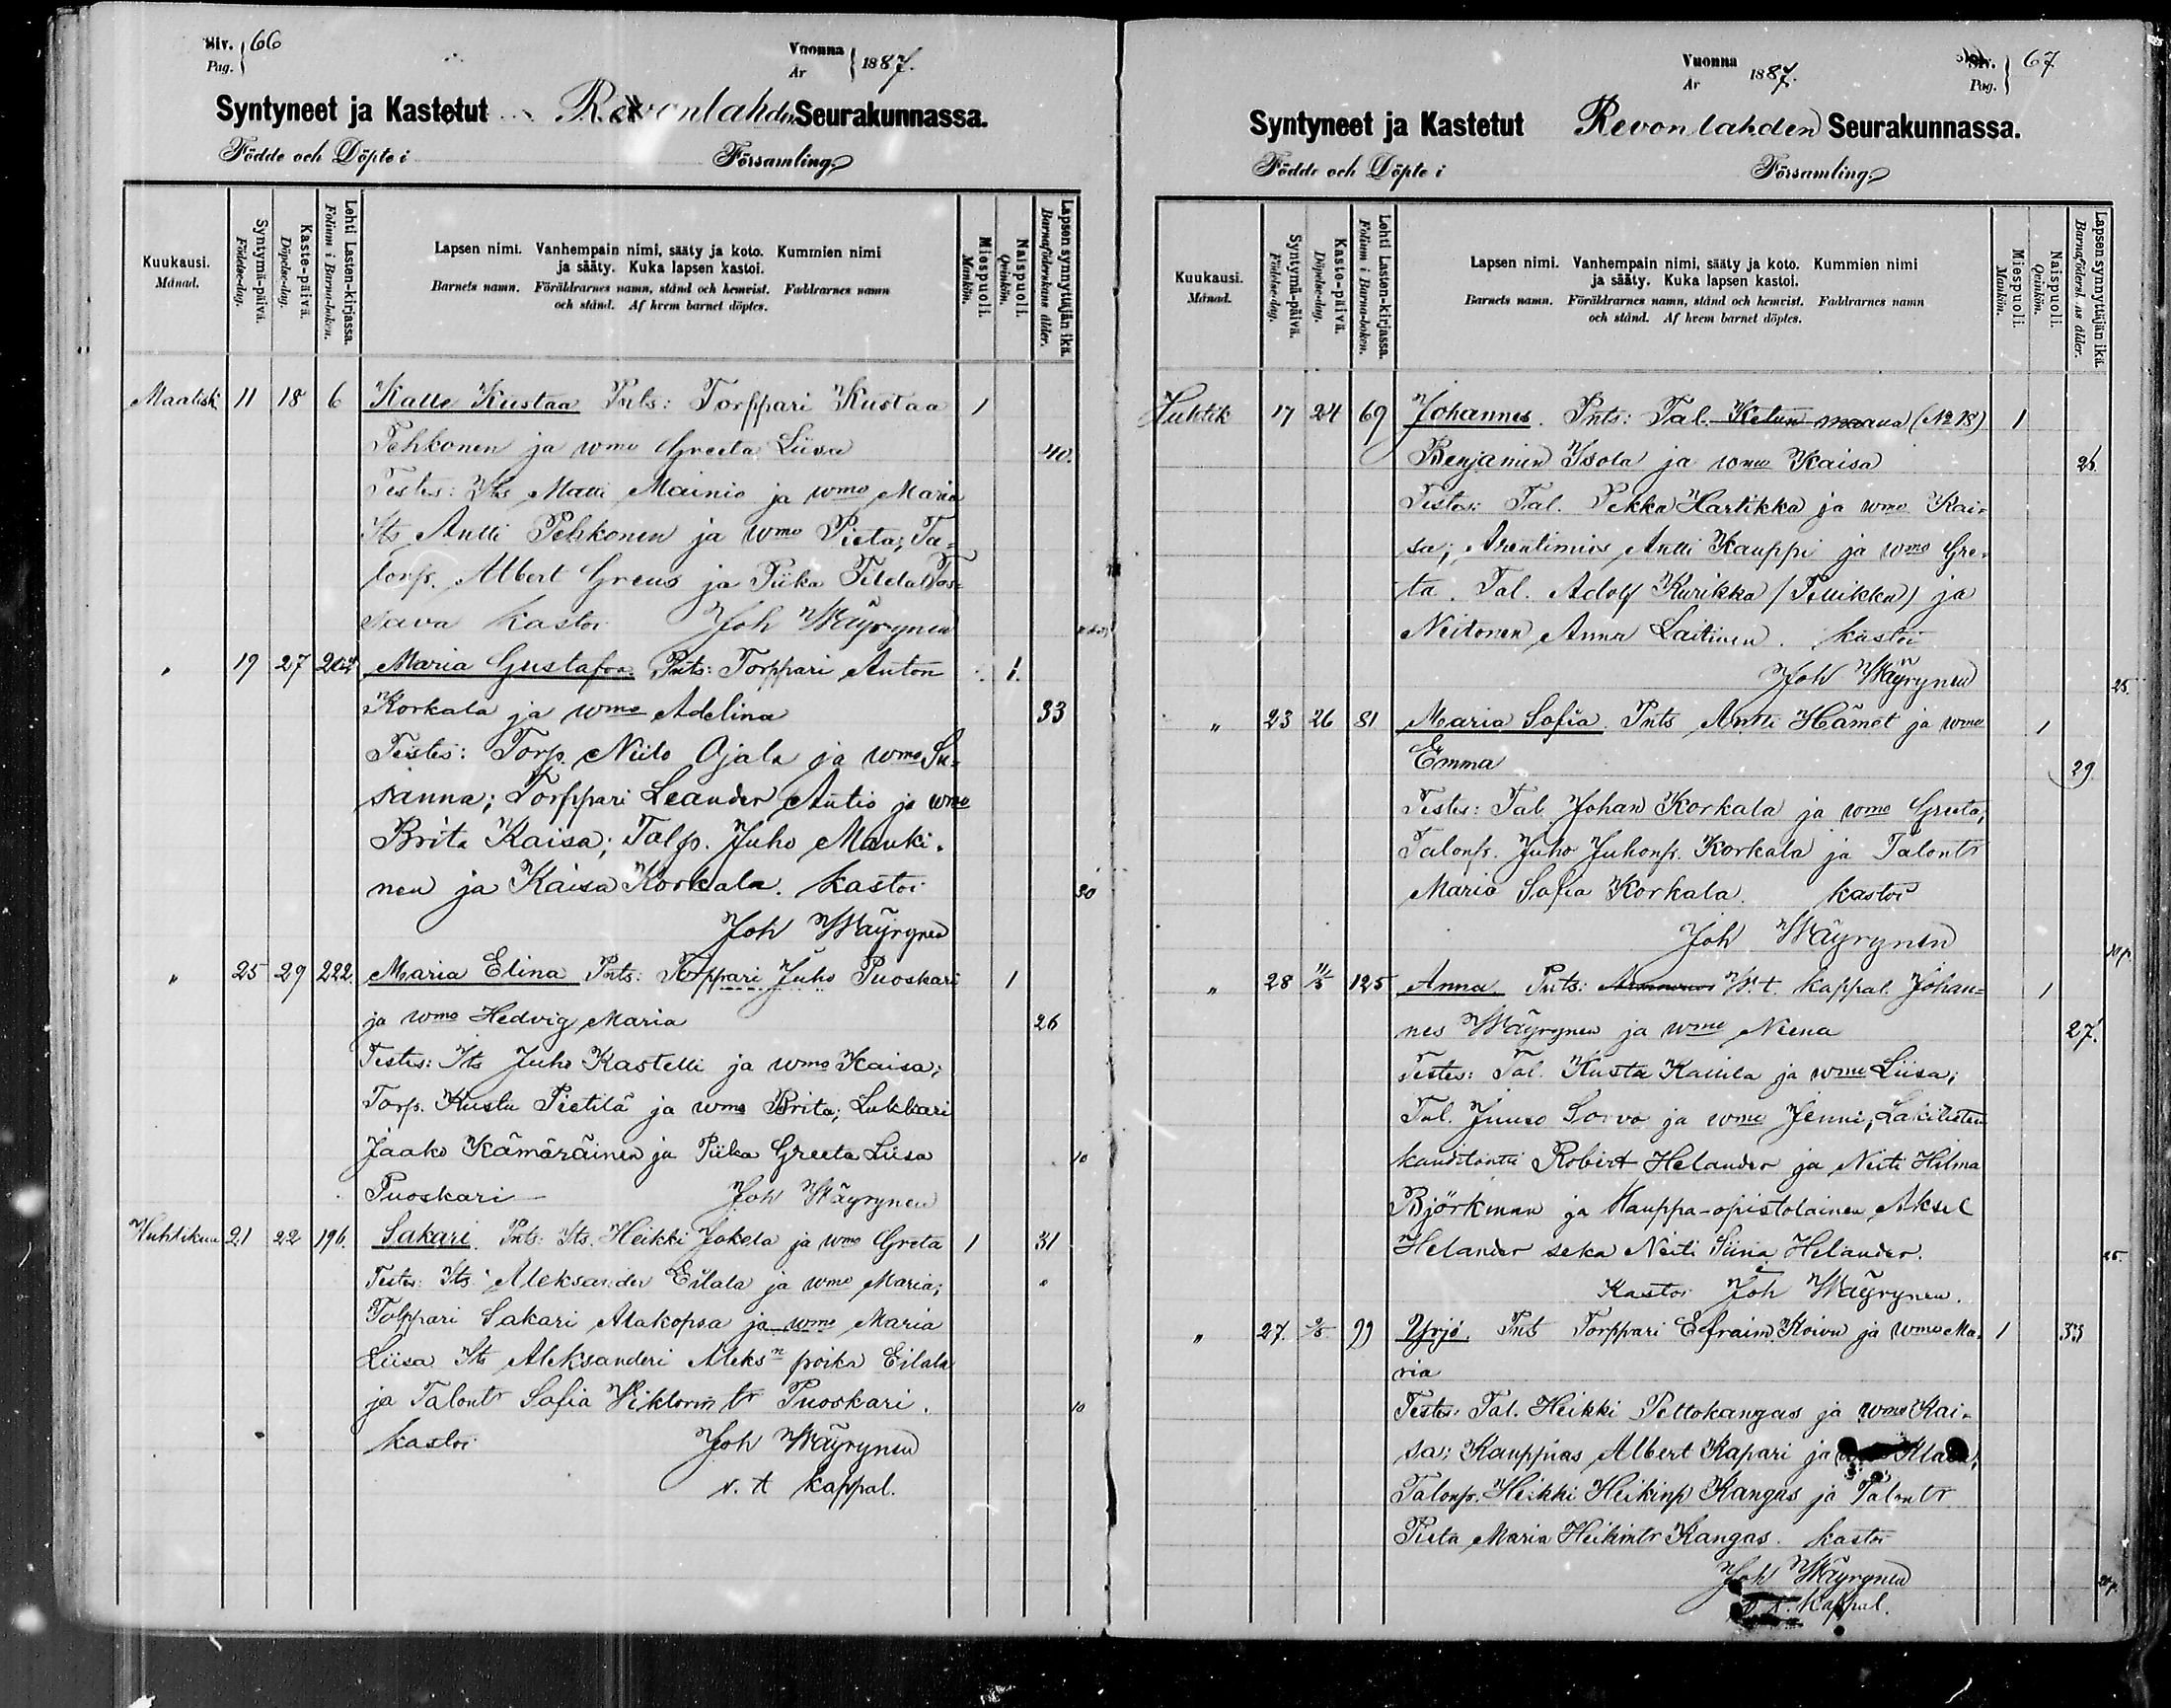 Siv. 66
Pag.
Vuonna
År 1887.
Syntyneet ja Kastetut Revonlahden Seurakunnassa.
Födde och Döpte i Församling
Kuukausi.
Månad.
Syntymä-päivä.
Födelse-dag.
Kaste-päivä.
Döpelse-dag.
Lehti Lasten-kirjassa.
Folium i Barna-boken.
Lapsen nimi. Vanhempain nimi, sääty ja koto. Kummien nimi
ja sääty. Kuka lapsen kastoi.
Barnets namn. Föräldrarnes namn, stånd och hemvist. Faddrarnes namn
och stånd. Af hvem barnet döptes.
Miespuoli.
Mankön.
Naispuoli.
Qvinkön.
Lapsen synnyttäjän ikä.
Barnaföderskans ålder.
Maalisk. 11 18 6 Kalle Kustaa Pnts: Torppari Kustaa 1
Pehkonen ja wmo Greeta Liisa 40.
Testes: Its Matti Mainio ja wmo Maria
Its Antti Pehkonen ja wmo Pieta; Ta-
lonp. Albert Greus ja Piika Tilda Tos-
sava kastoi Joh Wäyrynen
" 19 27 Maria Gustafva. Pnts: Torppari Anton 1.
Korkala ja wmo Adelina 33
Testes: Torp. Niilo Ojala ja wmo Su-
sanna; Torppari Leander Antio ja wmo
Brita Kaisa; Talp. Juho Manki-
nen ja Kaisa Korkala. kastoi 30
Joh Wäyrynen
" 25 29 222. Maria Elina Pnts: Torppari Juho Puoskari 1
ja wmo Hedvig Maria 26
Testes: Its Juho Kastelli ja wmo Kaisa;
Torp. Kusta Pietilä ja wmo Brita; Lukkari
Jaako Kämäräinen ja Piika Greeta Liisa 10
Puoskari — Joh Wäyrynen
Huhtikuu 21 22 196. Sakari. Pnts: Its. Heikki Jokela ja wmo Greta 1 31
Testes: Its Aleksander Eilala ja wmo Maria; "
Torppari Sakari Alakopsa ja wmo Maria
Liisa Its Aleksanderi Aleks.n poika Eilala
ja Talontr Sofia Wiktorintr Puoskari. 10
kastoi Joh Wäyrynen
v. t kappal.
Vuonna
År 1887.
Siv. 67
Pag.
Syntyneet ja Kastetut Revonlahden Seurakunnassa.
Födde och Döpte i Församling
Kuukausi.
Månad.
Syntymä-päivä.
Födelse-dag.
Kaste-päivä.
Döpelse-dag.
Lehti Lasten-kirjassa.
Folium i Barna-boken.
Lapsen nimi. Vanhempain nimi, sääty ja koto. Kummien nimi
ja sääty. Kuka lapsen kastoi.
Barnets namn. Föräldrarnes namn, stånd och hemvist. Faddrarnes namn
och stånd. Af hvem barnet döptes.
Miespuoli.
Mankön.
Naispuoli.
Qvinkön.
Lapsen synnyttäjän ikä.
Huhtik 17 24 69 Johannes. Pnts: Tal. (No 18) 1
Benjamin Isola ja wmo Kaisa 26.
Testes: Tal. Pekka Hartikka ja wmo Kai-
sa; Arentimies Antti Kauppi ja wmo Gre-
ta. Tal. Adolf Kurikka (Pellikka) ja
Neitonen Anna Laitinen. kastoi
Joh Wäyrynen 25.
" 23 26 81 Maria Sofia. Pnts Antti Hämet ja wmo 1
Emma 29
Testes: Tal. Johan Korkala ja wmo Greeta;
Talonp. Juho Juhonp. Korkala ja Talontr
Maria Sofia Korkala. kastoi
Joh Wäyrynen
" 28 11/5 125 Anna. Pnts: W. t. kappal. Johan- 1
nes Wäyrynen ja wmo Neena 27.
Testes: Tal. Kusta Kaiula ja wmo Liisa;
Tal. Juuso Sorvo ja wmo Jenni; Lakitieten
kanditantti Robert Helander ja Neiti Hilma
Björkman ja Kauppa-opistolainen Aksel
Helander seka Neiti Siina Helander. 25.
Kastoi Joh Wäyrynen.
" 27. 2/5 99 Yrjö. Pnts Torppari Efraim Koivu ja wmo Ma- 1 33
ria
Testes: Tal. Heikki Peltokangas ja wmo Kai-
sa; Kauppias Albert Kapari ja
Talonp. Heikki Heikinp Kangas ja Talontr
Pieta Maria Heikintr Kangas. kastoi
Joh Wäyrynen
v. t. kappal.